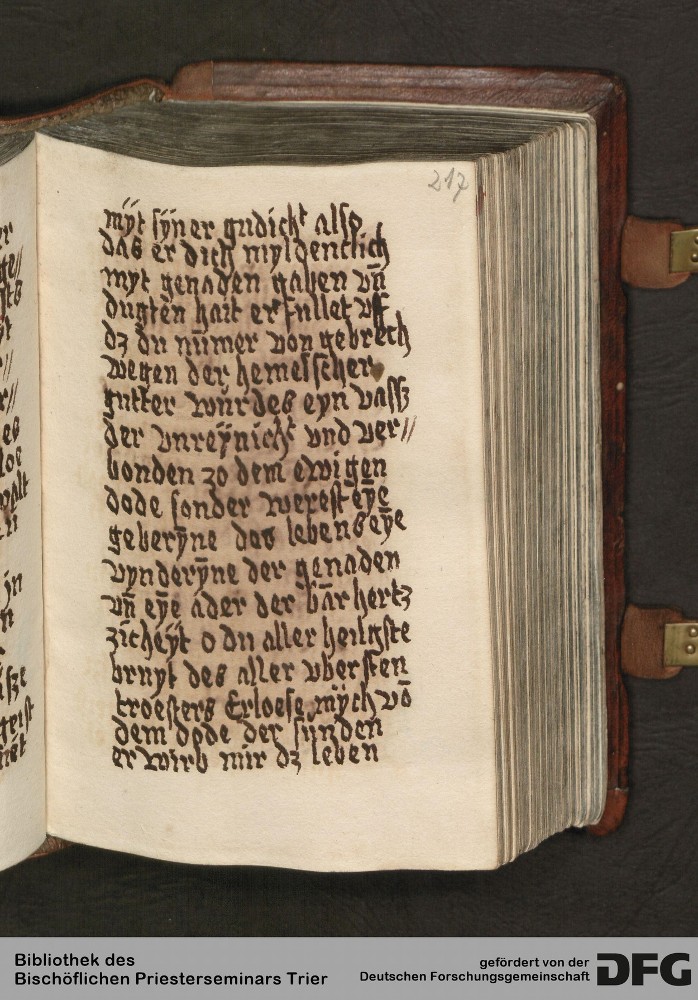 217
mÿt sÿner gudicht also
das er dich myldentlich
myt genaden gaben vn̄
dugten hait erfullet vff
dz du nūmer von gebrech
wegen der hemelscher
gutter wurdes eyn vassz
der vnreÿnicht vnd ver//
bonden zo dem ewigen
dode sonder werest eȳe
geberȳne des lebens eȳe
vynderȳne der genaden
vn̄ eȳe ader der barhertz
zicheÿt o du aller heiligste
bruyt des aller vbersten
troesters Erloese mÿch vō
dem dode der sunden
erwirb mir dz leben
Bibliothek des
Bischöflichen Priesterseminars Trier
gefördert von der
Deutschen Forschungsgemeinschaft
DFG